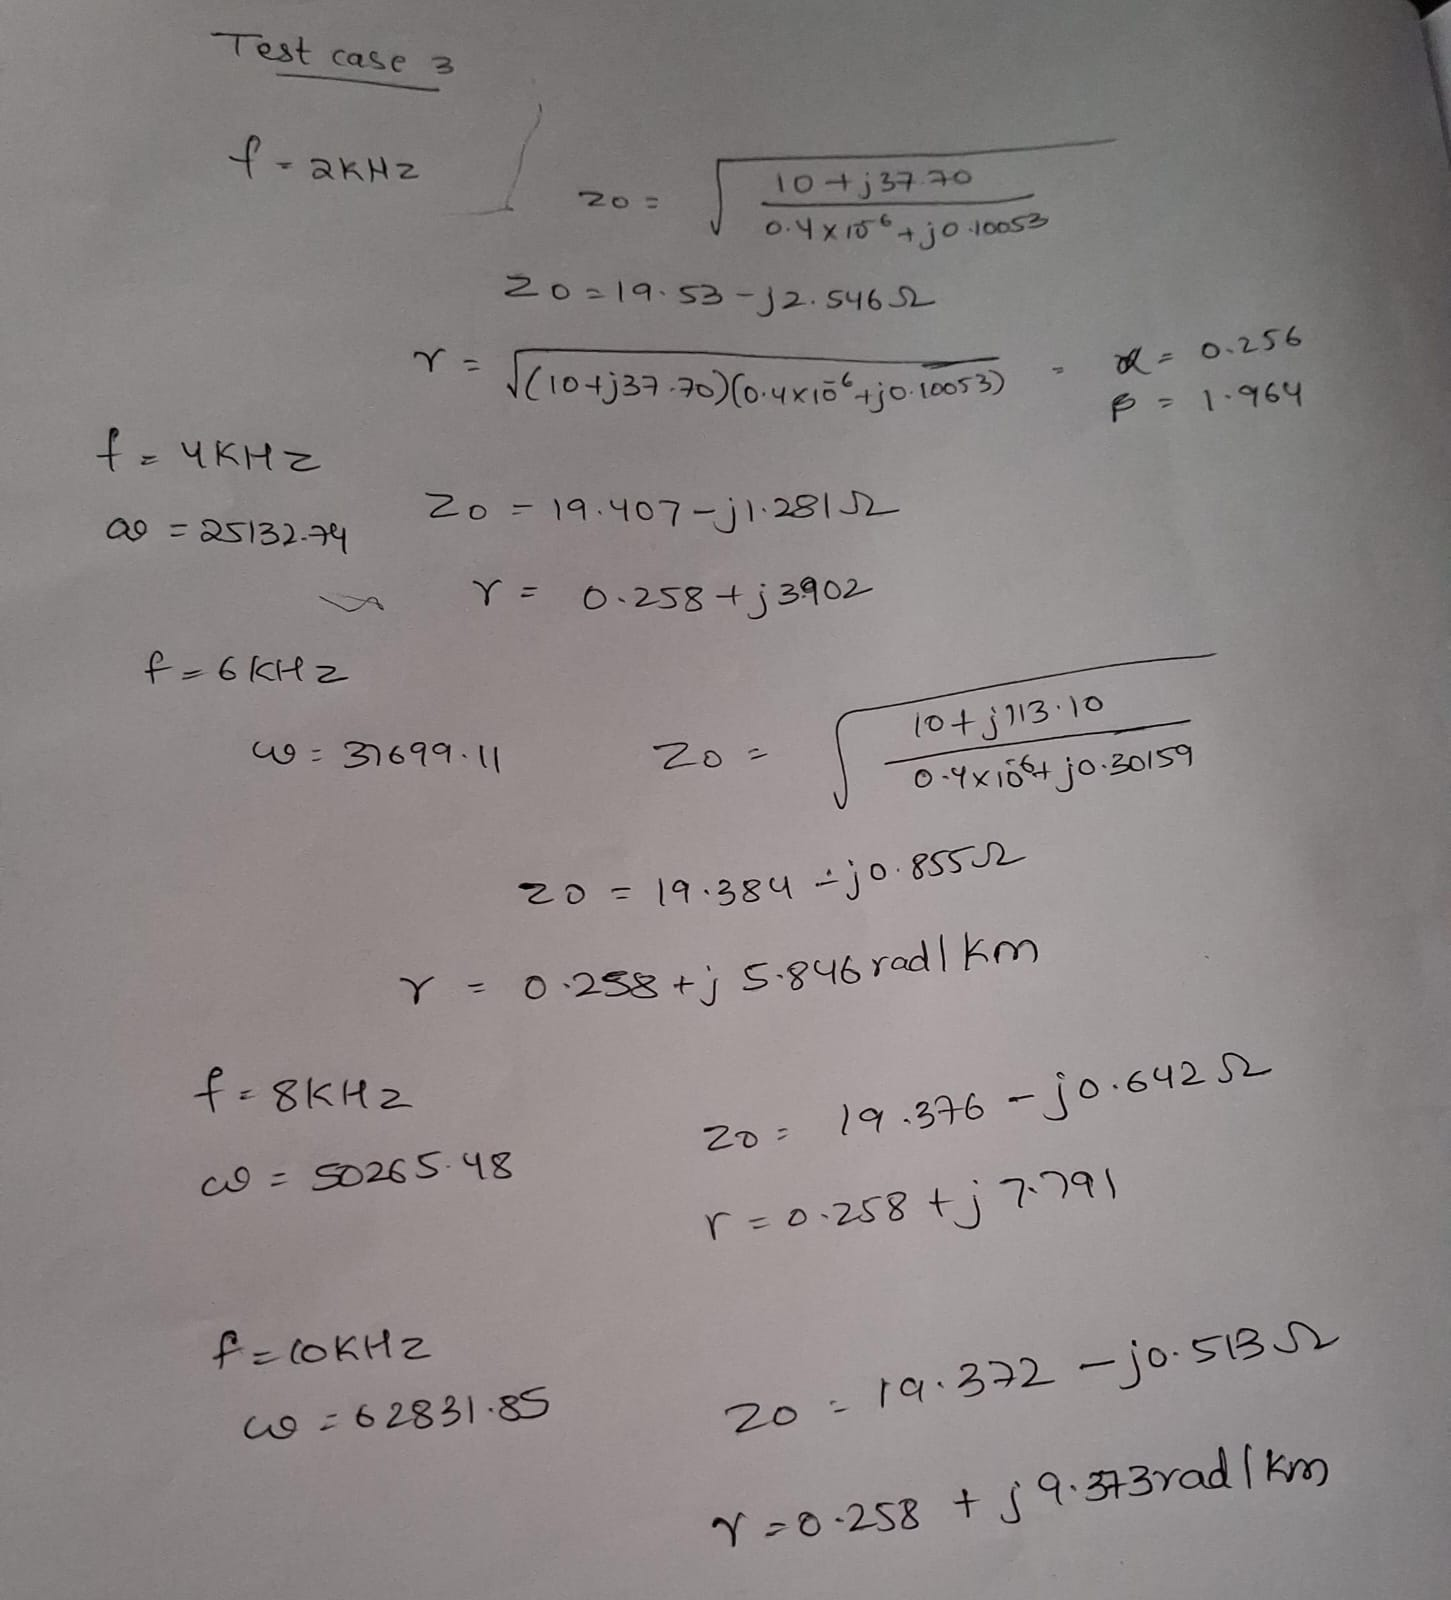 Test case 3
f = 2KHz
Z0 = √((10 + j37.70) / (0.4 x 10⁻⁶ + j0.10053))
Z0 = 19.53 - j2.546 Ω
γ = √((10 + j37.70)(0.4 x 10⁻⁶ + j0.10053)) = α = 0.256
β = 1.964
f = 4KHz
ω = 25132.74 Z0 = 19.407 - j1.281 Ω
γ = 0.258 + j3902
f = 6KHz
ω = 37699.11 Z0 = √((10 + j113.10) / (0.4 x 10⁻⁶ + j0.30159))
Z0 = 19.384 - j0.855 Ω
γ = 0.258 + j5.846 rad/km
f = 8KHz
ω = 50265.48
Z0 = 19.376 - j0.642 Ω
γ = 0.258 + j7.791
f = 10KHz
ω = 62831.85
Z0 = 19.372 - j0.513 Ω
γ = 0.258 + j9.373 rad/km